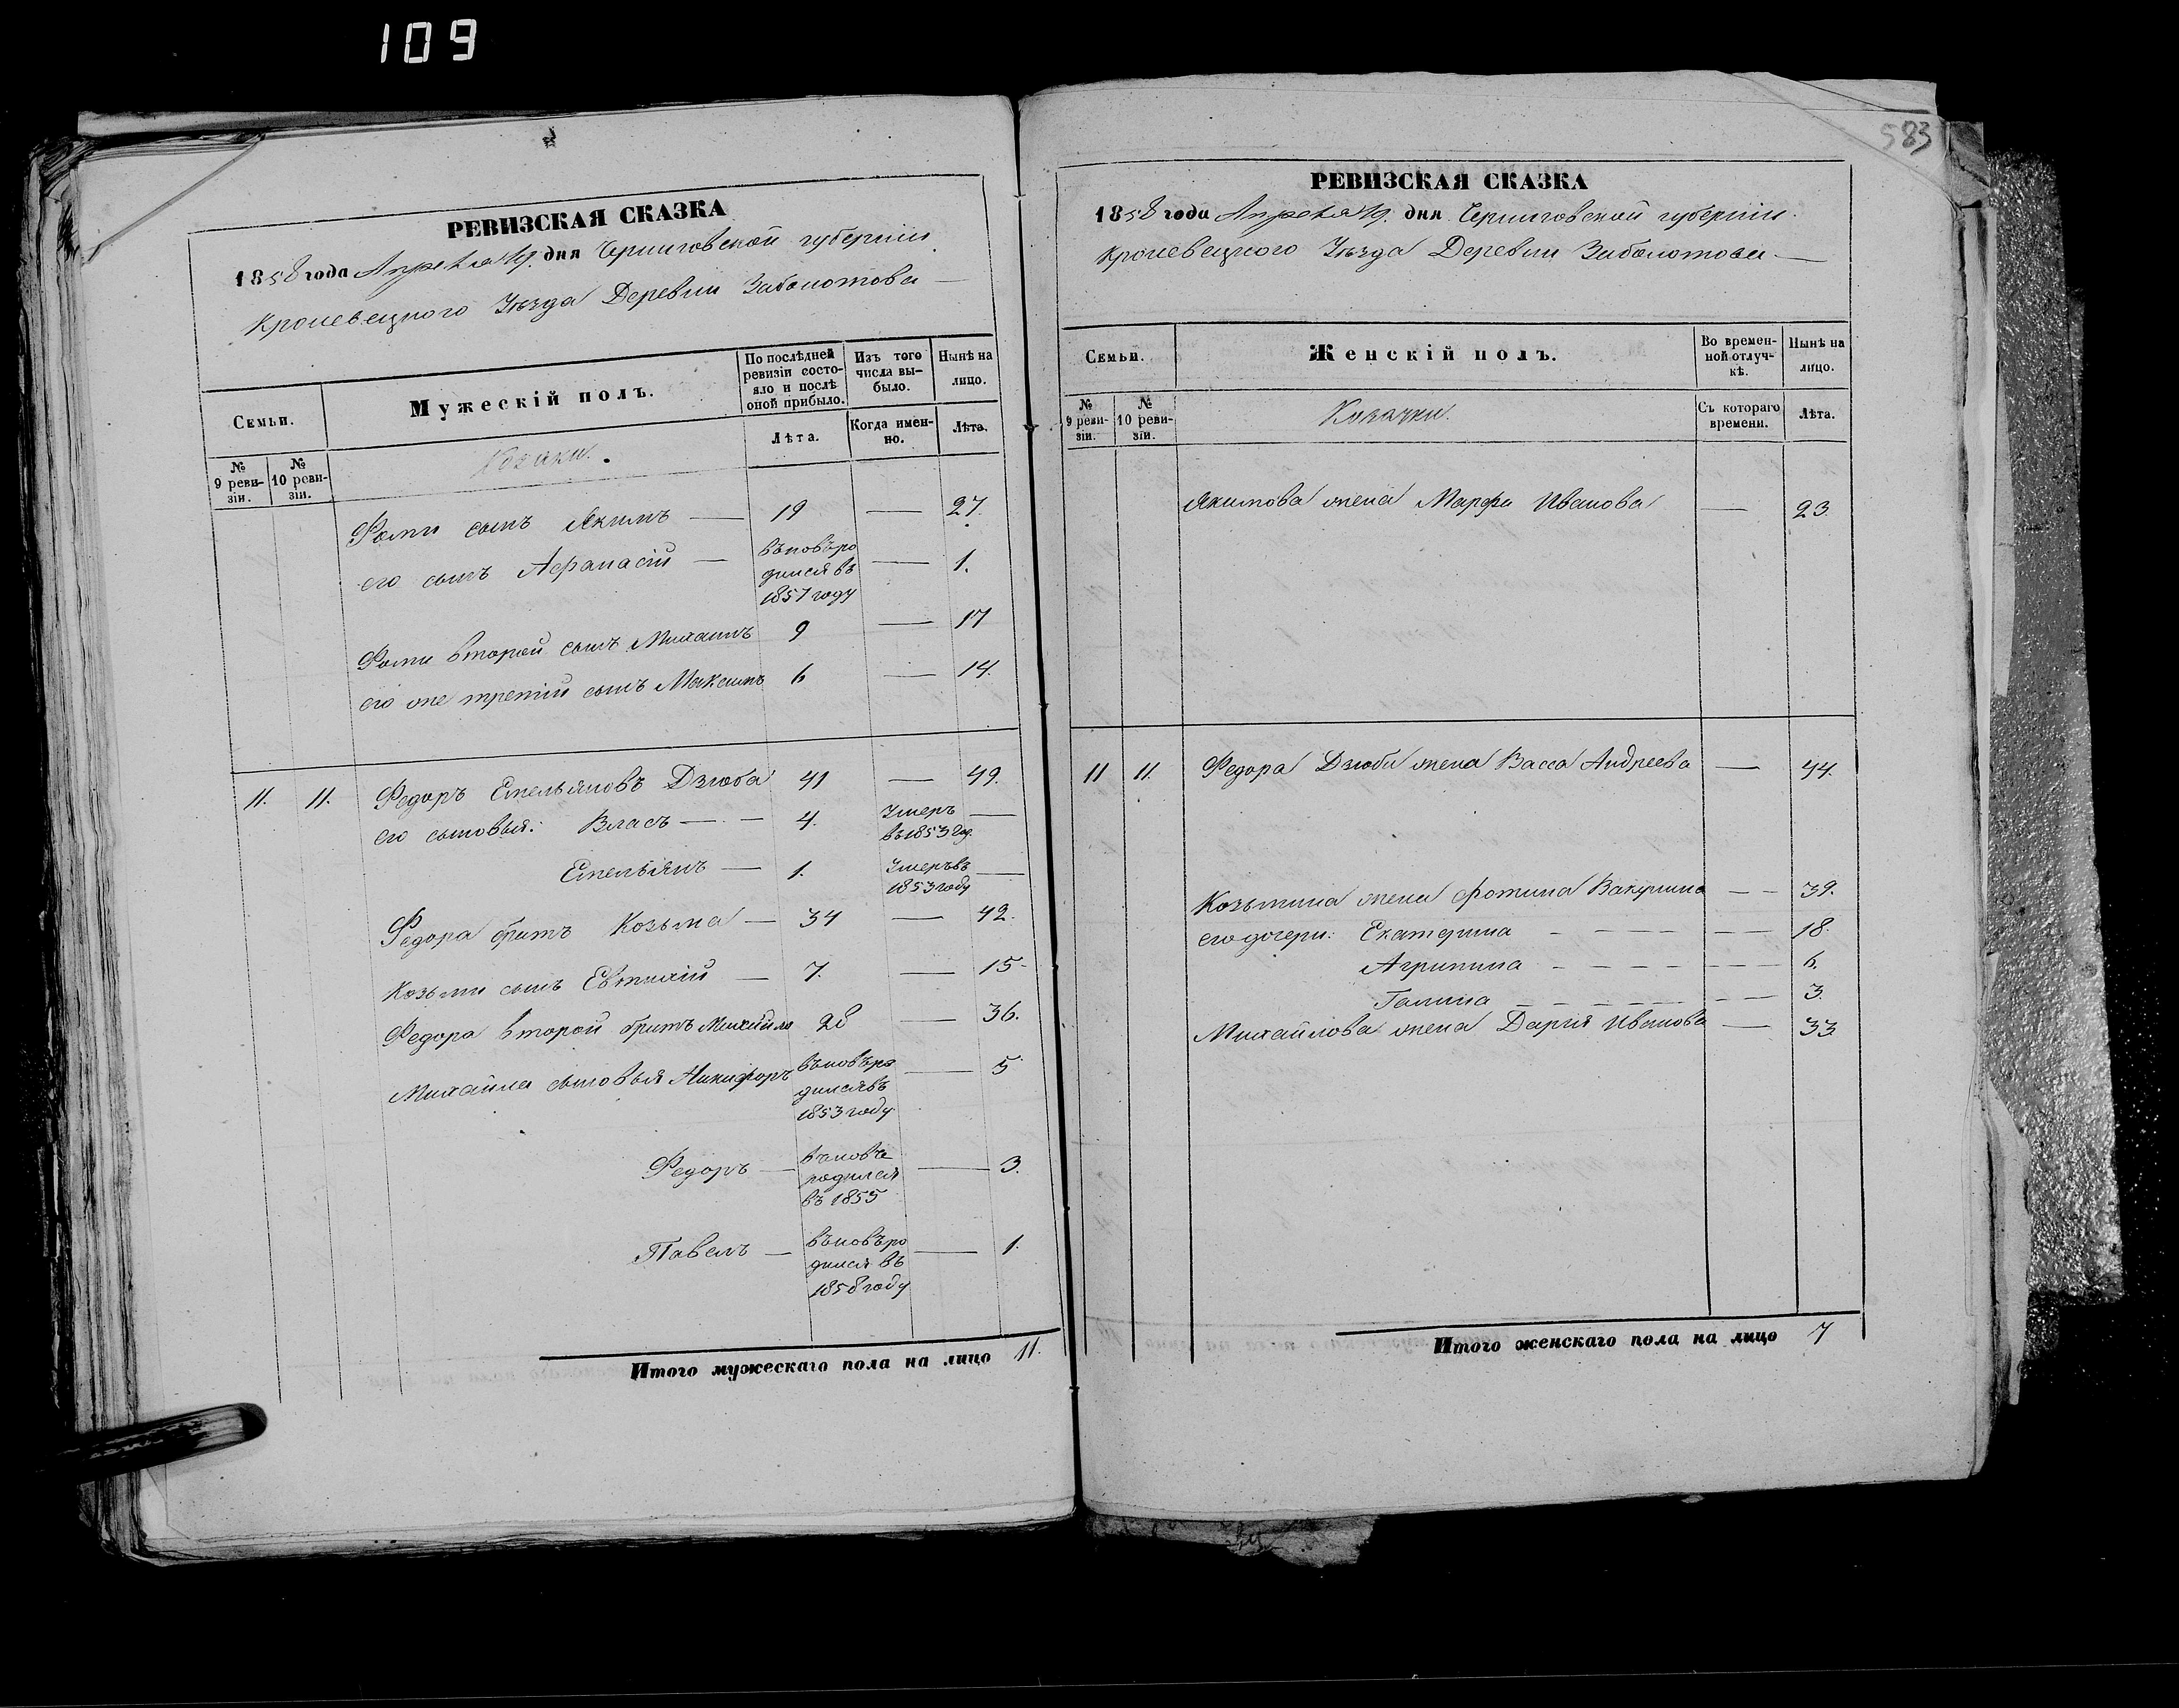 109
РЕВИЗСКАЯ СКАЗКА
1858 года Апреля 19. дня Черниговской губернии
Кролевецкого Уезда Деревни Заболотова —
Семьи.
Мужескій полъ.
По послѣдней ревизіи состояло и послѣ оной прибыло.
Изъ того числа выбыло.
Нынѣ на лицо.
№ 9 ревизіи.
№ 10 ревизіи.
Козаки.
Лѣта.
Когда именно.
Лѣта.
Фомы сынъ Якимъ — 19 — 27.
его сынъ Афанасій — вьновѣродился въ 1857 году — 1.
Фомы второй сынъ Михаилъ 9 — 17
его же третій сынъ Максимъ 6 — 14.
11. 11. Федоръ Емельяновъ Дзюба 41 — 49.
его сыновья: Власъ — — 4. Умеръ въ 1853 год. —
Емельянъ — 1. Умеръ въ 1853 году —
Федора братъ Козьма — 34 — 42.
Козьмы сынъ Евтихій — 7. — 15
Федора второй братъ Михайло 28 — 36.
Михайла сыновья Никифоръ вьновѣродился въ 1853 году — 5
Федоръ — вьновѣ родился въ 1855 — 3.
Павелъ — вьновѣродился въ 1858 году — 1.
Итого мужескаго пола на лицо 11.
583
РЕВИЗСКАЯ СКАЗКА
1858 года Апреля 19. дня Черниговской губернии.
Кролевецкого Уезда Деревни Заболотови —
Семьи.
Женскій полъ.
Во временной отлучкѣ.
Нынѣ на лицо.
№ 9 ревизіи.
№ 10 ревизіи.
Козачки.
Съ котораго времени.
Лѣта.
Якимова жена Марфа Иванова — 23.
11 11. Федора Дзюбы жена Васса Андреева — 44.
Козьмина жена Фотина Вакулина — — 39.
его дочери: Екатерина — — — — — — 18.
Агрипина — — — — — — — 6.
Галина — — — — — — — 3.
Михайлова жена Дарія Иванова — 33
Итого женскаго пола на лицо 7